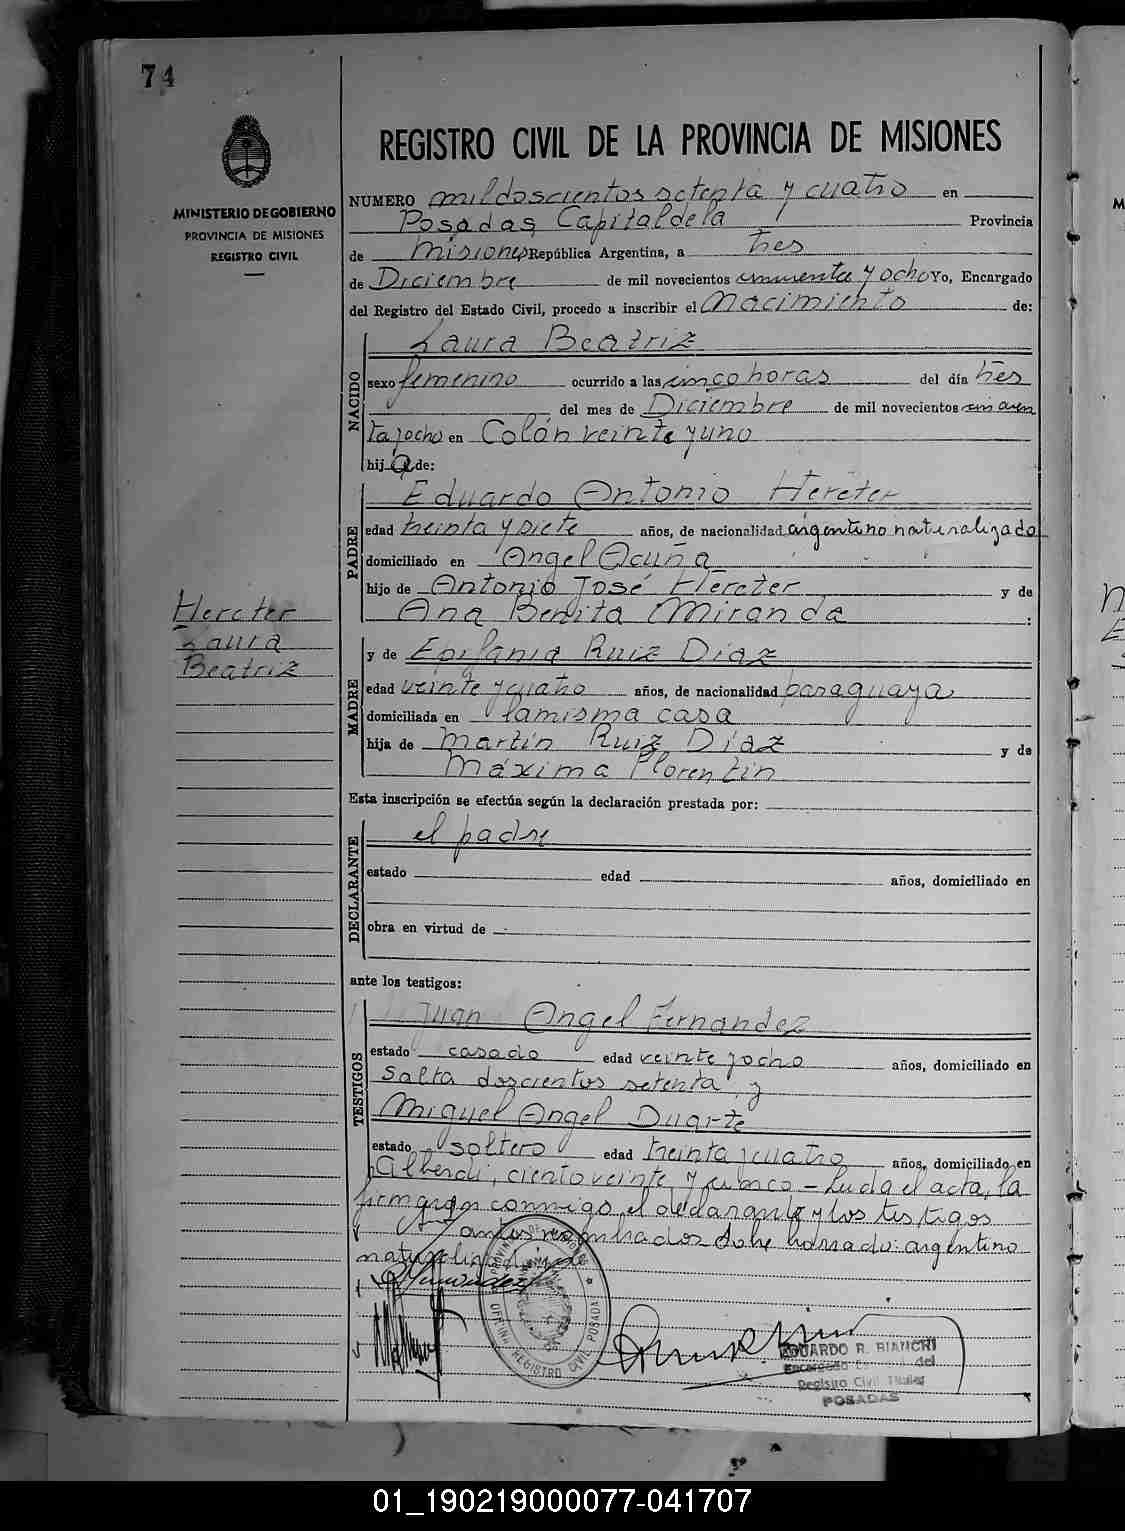 74
MINISTERIO DE GOBIERNO
PROVINCIA DE MISIONES
REGISTRO CIVIL
REGISTRO CIVIL DE LA PROVINCIA DE MISIONES
NUMERO mil doscientos setenta y cuatro en
Posadas Capital de la Provincia
de Misiones República Argentina, a tres
de Diciembre de mil novecientos cincuenta y ocho Yo, Encargado
del Registro del Estado Civil, procedo a inscribir el Nacimiento de:
NACIDO
Laura Beatriz
sexo femenino ocurrido a las cinco horas del día tres
del mes de Diciembre de mil novecientos cincuen
ta y ocho en Colón veinte y uno
hija de:
PADRE
Eduardo Antonio Hereter
edad treinta y siete años, de nacionalidad argentino naturalizado
domiciliado en Angel Acuña
hijo de Antonio José Hereter y de
Ana Benita Miranda :
Hereter
Laura
Beatriz
MADRE
y de Epifania Ruiz Diaz
edad veinte y cuatro años, de nacionalidad paraguaya
domiciliada en la misma casa
hija de Martín Ruiz Díaz y de
Máxima Florentin
Esta inscripción se efectúa según la declaración prestada por:
DECLARANTE
el padre
estado edad años, domiciliado en
obra en virtud de
ante los testigos:
TESTIGOS
Juan Angel Fernandez
estado casado edad veinte y ocho años, domiciliado en
Salta doscientos setenta y
Miguel Angel Duarte
estado soltero edad treinta y cuatro años, domiciliado en
Alberdi, ciento veinte y cinco - Leida el acta, la
firmaron conmigo el declarante y los testigos
antes nombrados Sobre borrado: argentino
PROVINCIA DE MISIONES
OFICINA REGISTRO CIVIL POSADAS
EDUARDO R. BIANCHI
Encargado del
Registro Civil Titular
POSADAS
01_190219000077-041707